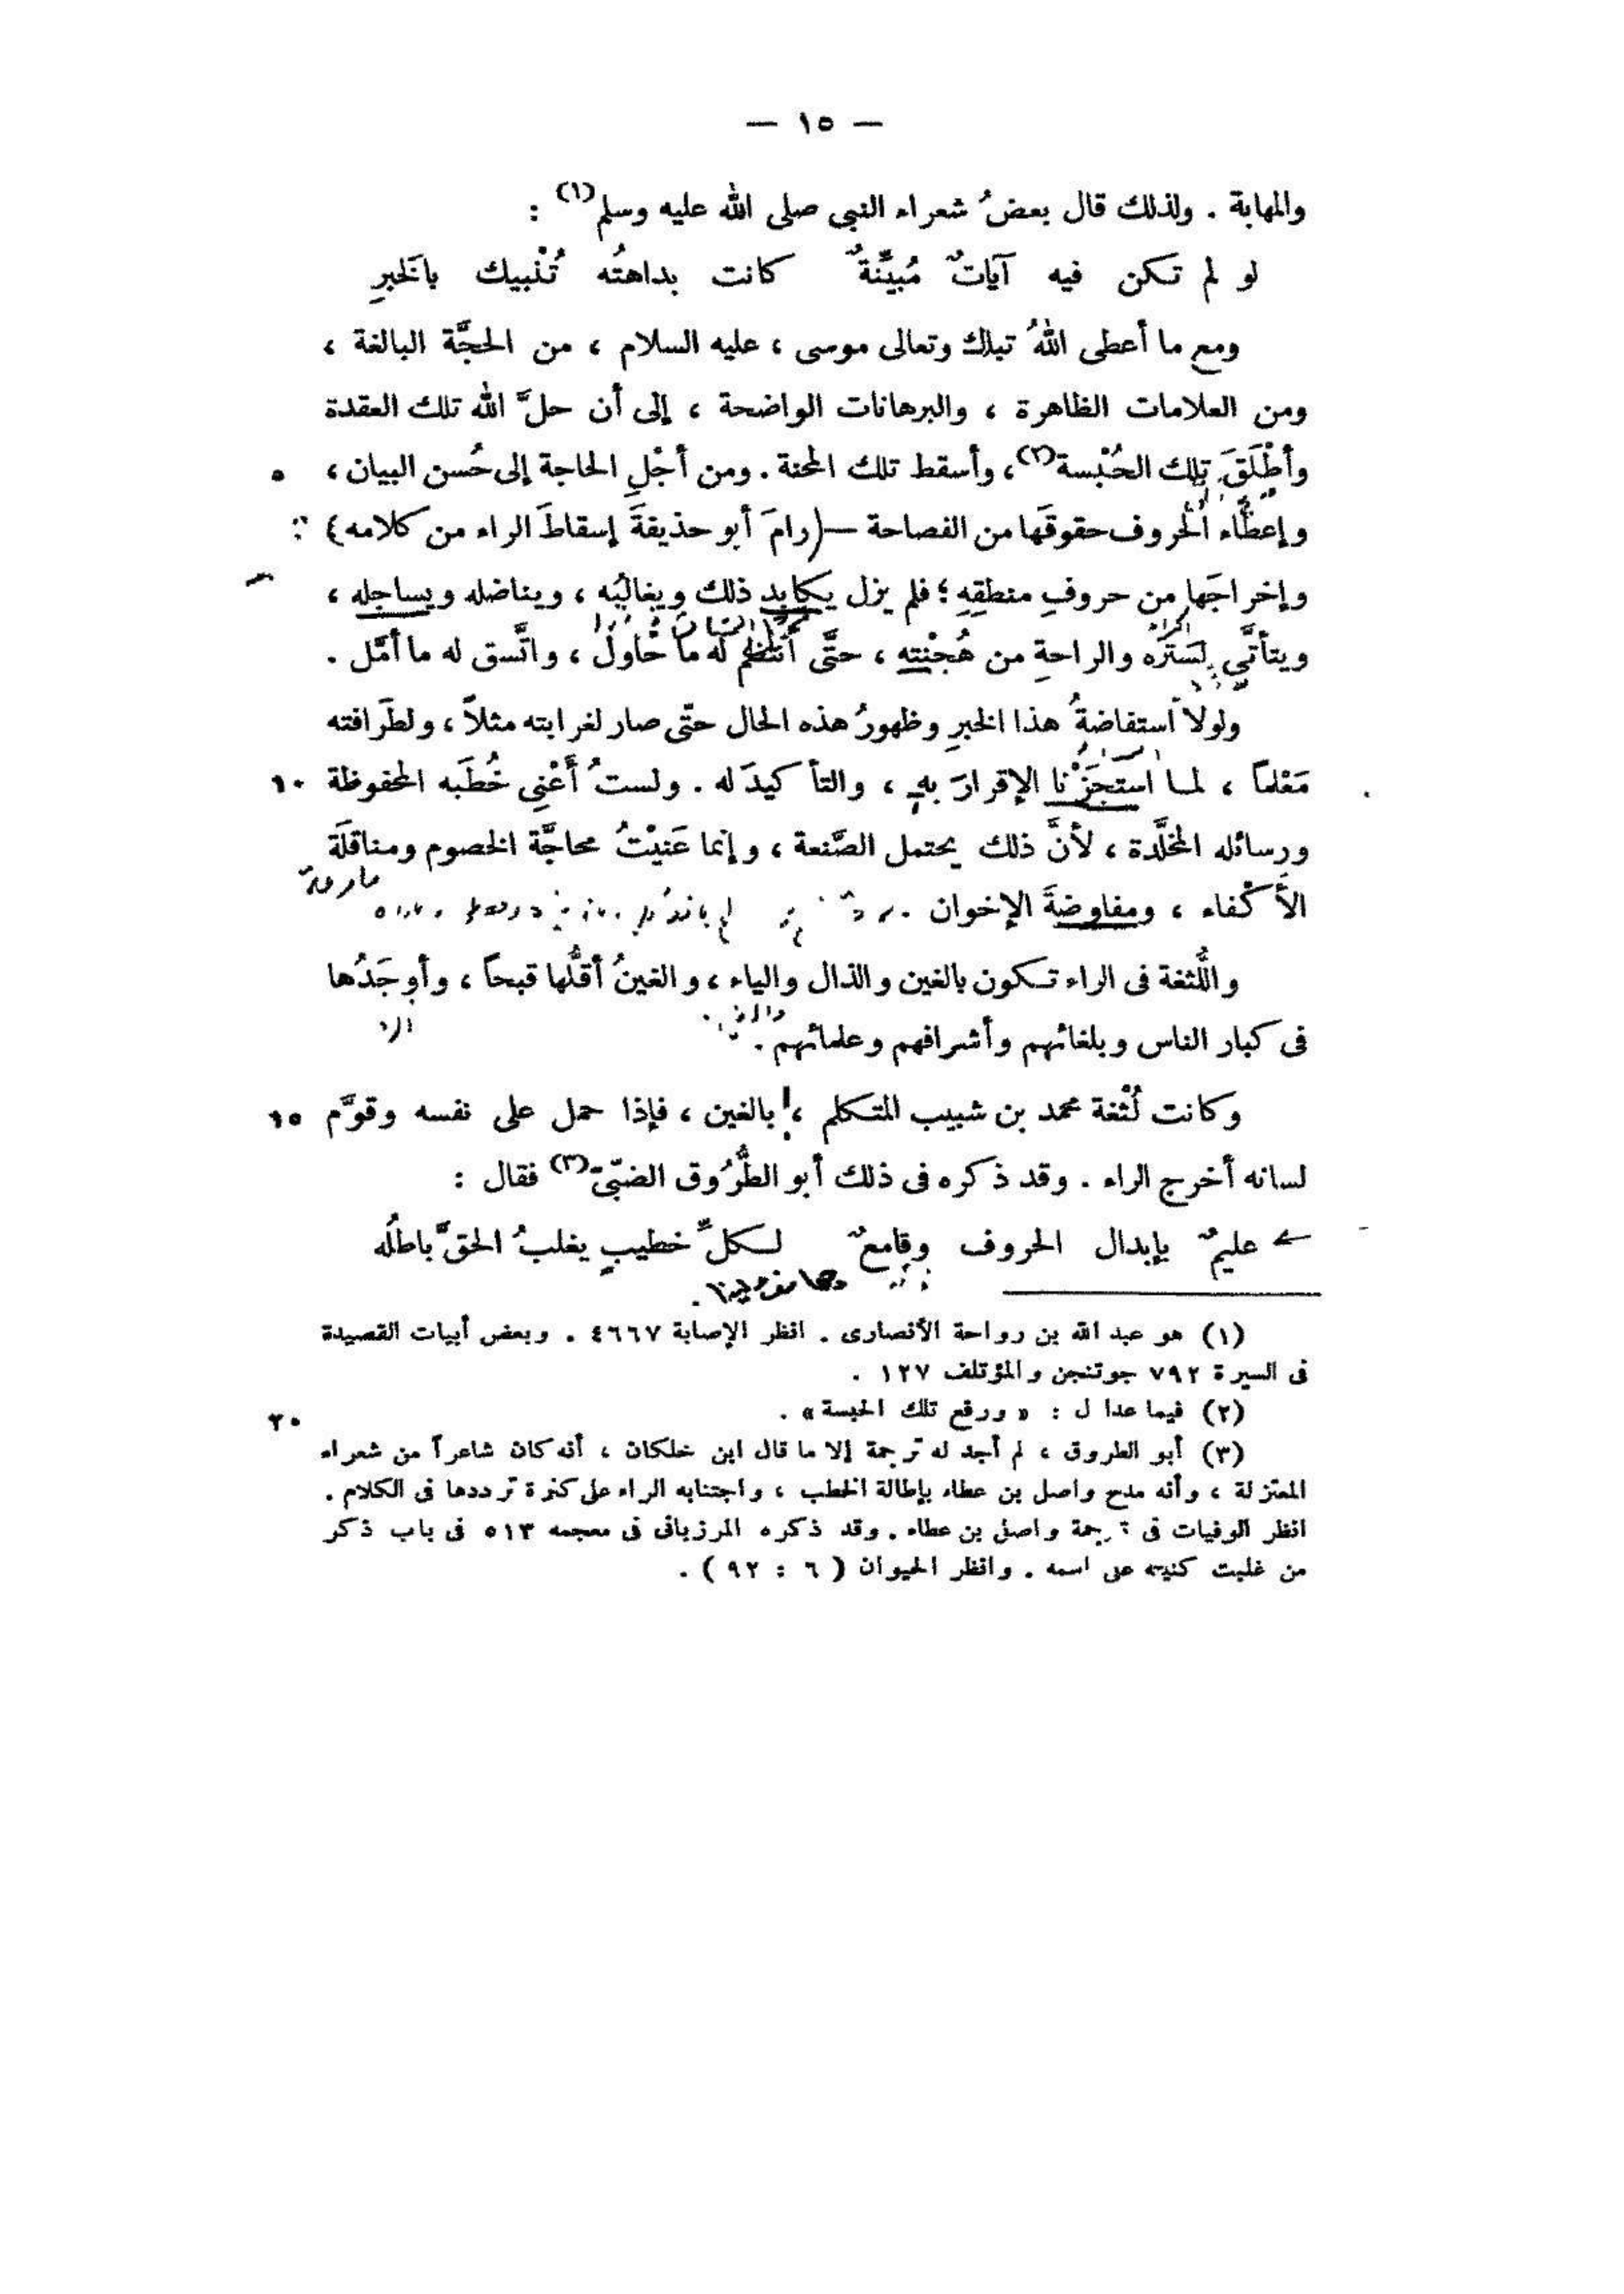 — ١٥ —
والمهابة . ولذلك قال بعضُ شعراء النبى صلى الله عليه وسلم (١) :
لو لم تكن فيه آياتٌ مُبيِّنةٌ كانت بداهتُه تُنْبيك بالَخبرِ
ومع ما أعطى اللهُ تبارك وتعالى موسى ، عليه السلام ، من الحجَّة البالغة ،
ومن العلامات الظاهرة ، والبرهانات الواضحة ، إلى أن حلَّ الله تلك العقدة
وأطْلَقَ تلك الحُبْسة (٢)، وأسقط تلك المحنة . ومن أجْلِ الحاجة إلى حُسن البيان ، ٥
وإعطاء الُحروف حقوقَها من الفصاحة — رامَ أبو حذيفةَ إسقاطَ الراء من كلامه ،
وإخراجَها من حروفِ منطقِهِ ؛ فلم يزل يكابد ذلك ويغالبُه ، ويناضله ويساجله ،
ويتأتَّى لسَتْره والراحةِ من هُجْنته ، حتَّى انتظم له ما حاول ، واتَّسق له ما أمَّل .
ولولا استفاضةُ هذا الخبرِ وظهورُ هذه الحال حتّى صار لغرابته مثلاً ، ولطَرافته
مَعْلماً ، لمـا استَجَزْنا الإقرارَ به ، والتأكيدَ له . ولستُ أعْنِى خُطَبه المحفوظة ١٠
ورسائله المخلَّدة ، لأنَّ ذلك يحتمل الصَّنعة ، وإنما عَنيْتُ محاجَّة الخصوم ومناقلَة
الأكْفاء ، ومفاوضةَ الإخوان .
واللُّثغة فى الراء تكون بالغين والذال والياء ، والغينُ أقلُّها قبحاً ، وأوجَدُها
فى كبار الناس وبلغائهم وأشرافهم وعلمائهم .
وكانت لُثْغة محمد بن شبيب المتكلم ، بالغين ، فإذا حمل على نفسه وقوَّم ١٥
لسانه أخرج الراء . وقد ذكره فى ذلك أبو الطُّرُوق الضبّىّ (٣) فقال :
عليمٌ بإبدال الحروف وقامعٌ لكلِّ خطيبٍ يغلبُ الحقَّ باطلُه
(١) هو عبد الله بن رواحة الأنصارى . انظر الإصابة ٤٦٦٧ . وبعض أبيات القصيدة
فى السيرة ٧٩٢ جوتنجن والمؤتلف ١٢٧ .
(٢) فيما عدا ل : « ورفع تلك الحبسة » . ٢٠
(٣) أبو الطروق ، لم أجد له ترجمة إلا ما قال ابن خلكان ، أنه كان شاعراً من شعراء
المعتزلة ، وأنه مدح واصل بن عطاء بإطالة الخطب ، واجتنابه الراء على كثرة ترددها فى الكلام .
انظر الوفيات فى ترجمة واصل بن عطاء . وقد ذكره المرزبانى فى معجمه ٥١٣ فى باب ذكر
من غلبت كنيته على اسمه . وانظر الحيوان ( ٦ : ٩٢ ) .